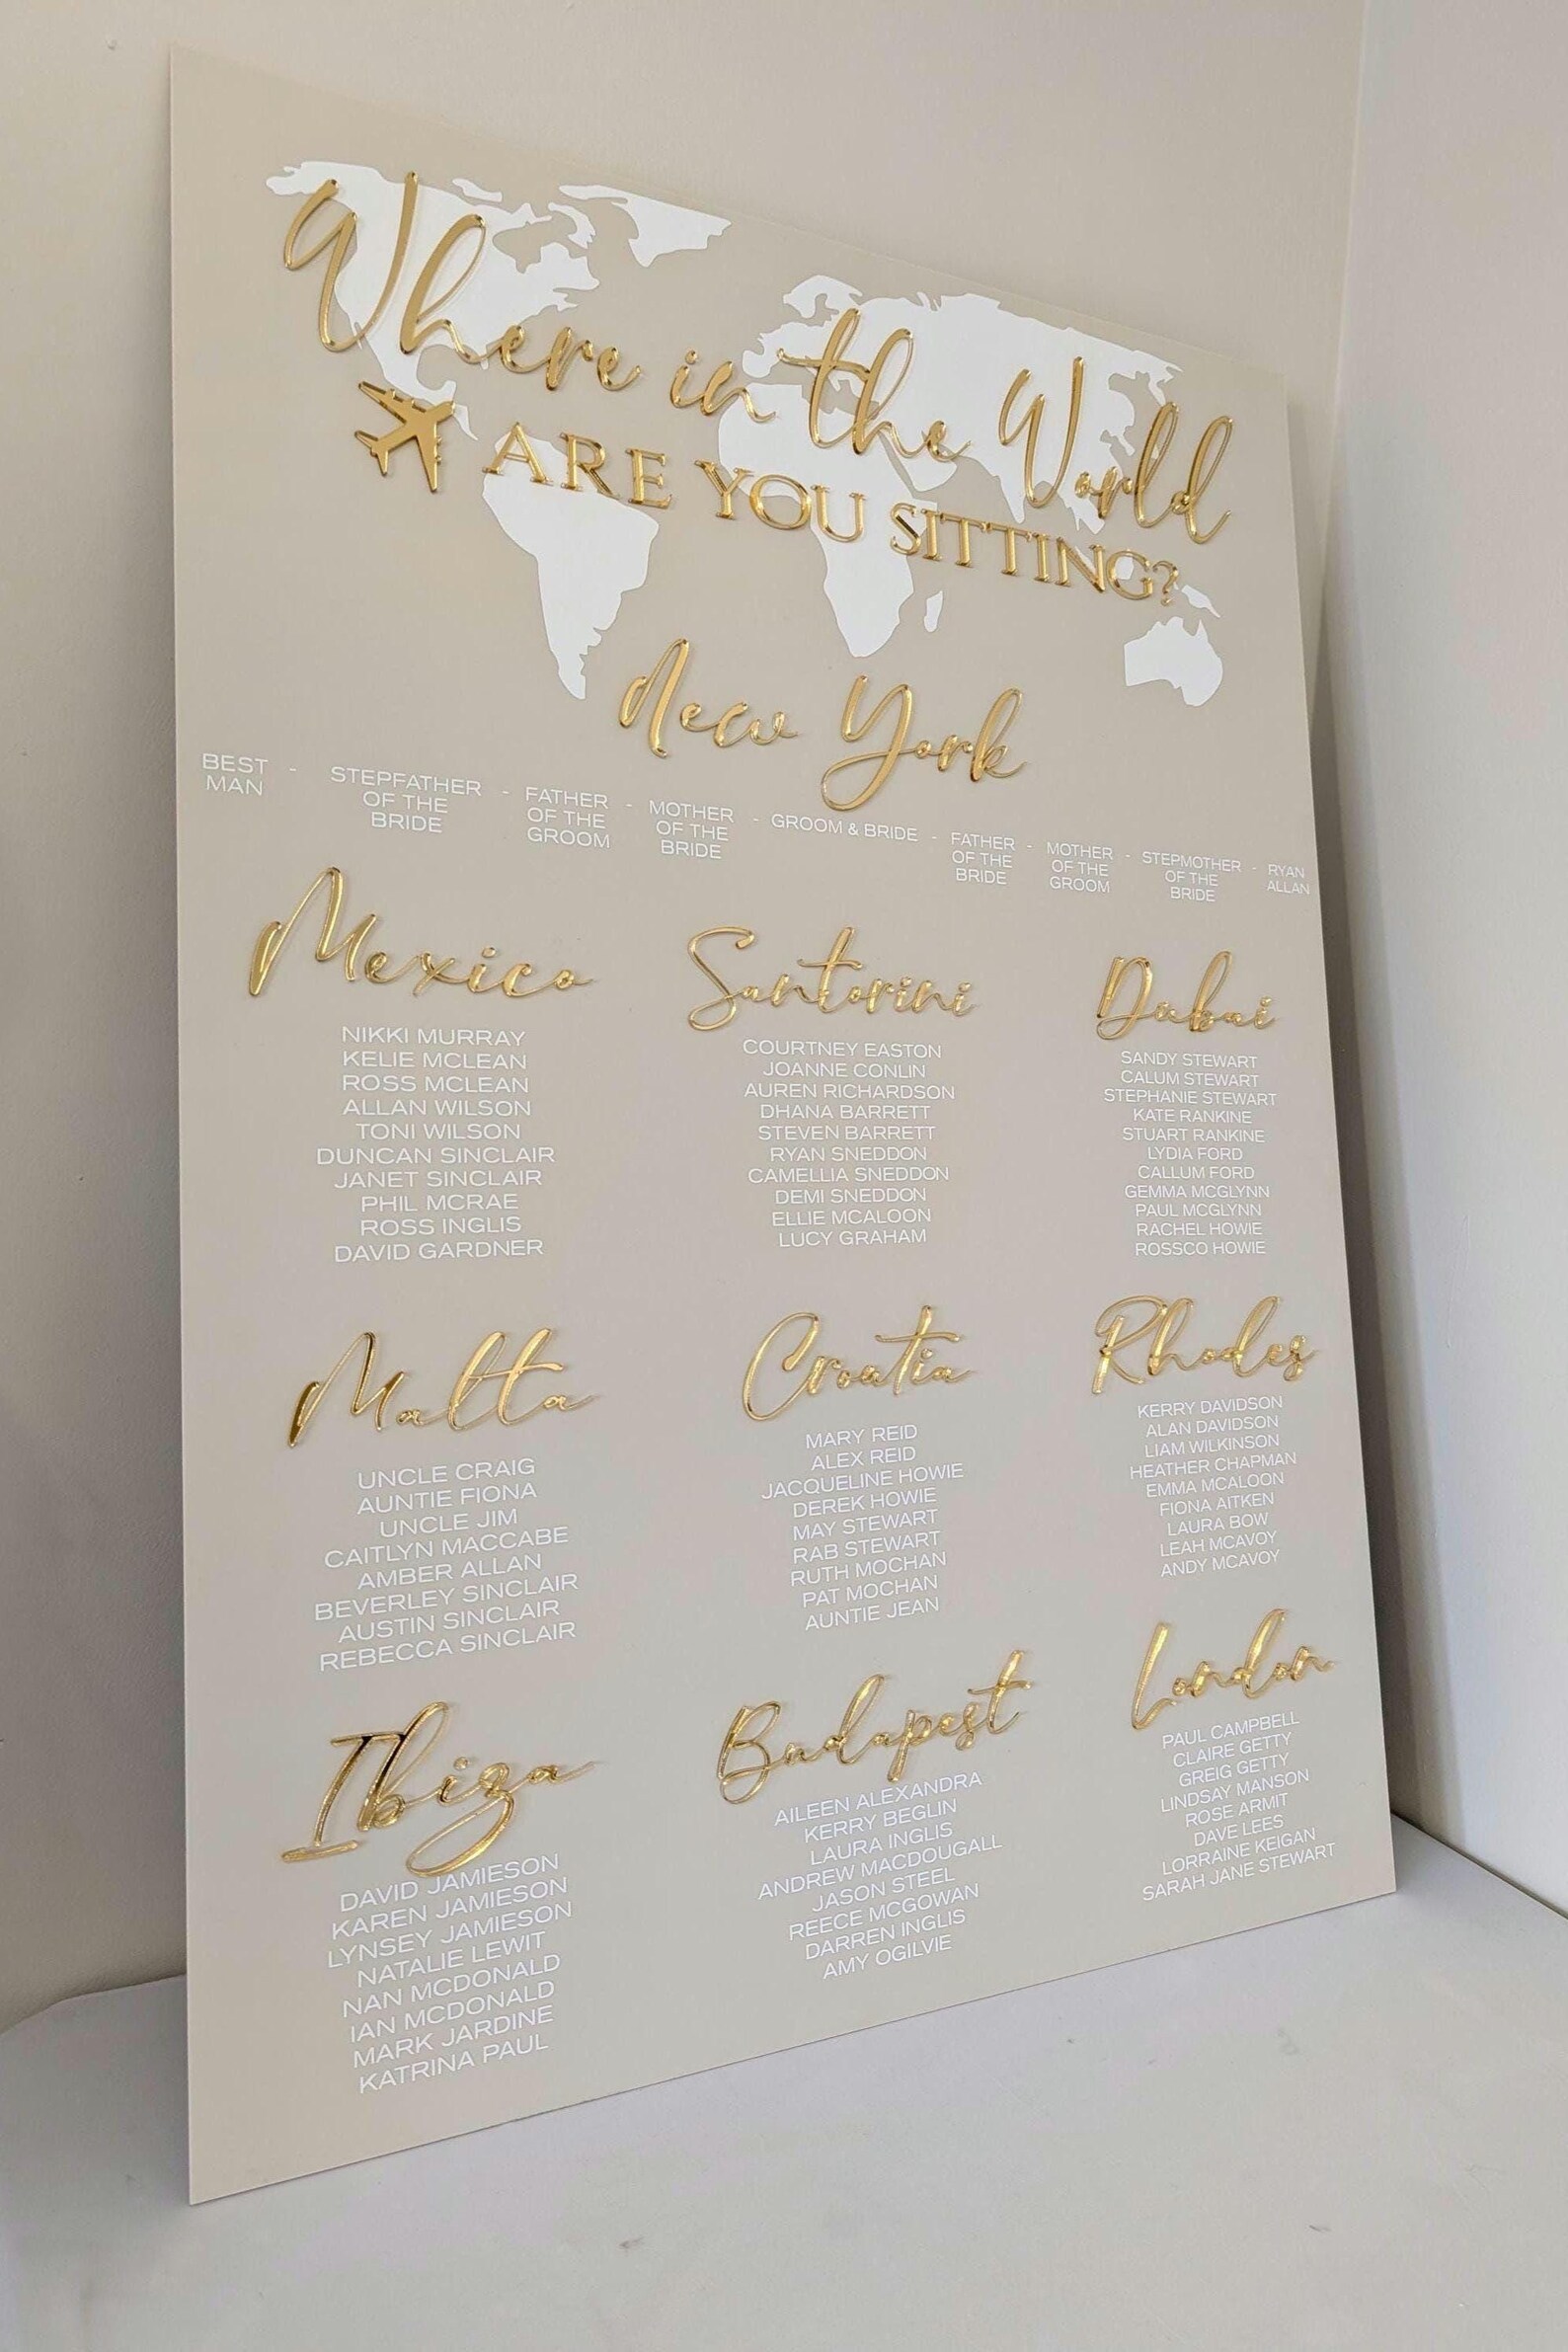 Where in the World
ARE YOU SITTING?
New York
BEST MAN - STEPFATHER OF THE BRIDE - FATHER OF THE GROOM - MOTHER OF THE BRIDE - GROOM & BRIDE - FATHER OF THE BRIDE - MOTHER OF THE GROOM - STEPMOTHER OF THE BRIDE - RYAN ALLAN
Mexico
NIKKI MURRAY
KELIE MCLEAN
ROSS MCLEAN
ALLAN WILSON
TONI WILSON
DUNCAN SINCLAIR
JANET SINCLAIR
PHIL MCRAE
ROSS INGLIS
DAVID GARDNER
Santorini
COURTNEY EASTON
JOANNE CONLIN
AUREN RICHARDSON
DHANA BARRETT
STEVEN BARRETT
RYAN SNEDDON
CAMELLIA SNEDDON
DEMI SNEDDON
ELLIE MCALOON
LUCY GRAHAM
Dubai
SANDY STEWART
CALUM STEWART
STEPHANIE STEWART
KATE RANKINE
STUART RANKINE
LYDIA FORD
CALLUM FORD
GEMMA MCGLYNN
PAUL MCGLYNN
RACHEL HOWIE
ROSSCO HOWIE
Malta
UNCLE CRAIG
AUNTIE FIONA
UNCLE JIM
CAITLYN MACCABE
AMBER ALLAN
BEVERLEY SINCLAIR
AUSTIN SINCLAIR
REBECCA SINCLAIR
Croatia
MARY REID
ALEX REID
JACQUELINE HOWIE
DEREK HOWIE
MAY STEWART
RAB STEWART
RUTH MOCHAN
PAT MOCHAN
AUNTIE JEAN
Rhodes
KERRY DAVIDSON
ALAN DAVIDSON
LIAM WILKINSON
HEATHER CHAPMAN
EMMA MCALOON
FIONA AITKEN
LAURA BOW
LEAH MCAVOY
ANDY MCAVOY
Ibiza
DAVID JAMIESON
KAREN JAMIESON
LYNSEY JAMIESON
NATALIE LEWIT
NAN MCDONALD
IAN MCDONALD
MARK JARDINE
KATRINA PAUL
Budapest
AILEEN ALEXANDRA
KERRY BEGLIN
LAURA INGLIS
ANDREW MACDOUGALL
JASON STEEL
REECE MCGOWAN
DARREN INGLIS
AMY OGILVIE
London
PAUL CAMPBELL
CLAIRE GETTY
GREIG GETTY
LINDSAY MANSON
ROSE ARMIT
DAVE LEES
LORRAINE KEIGAN
SARAH JANE STEWART